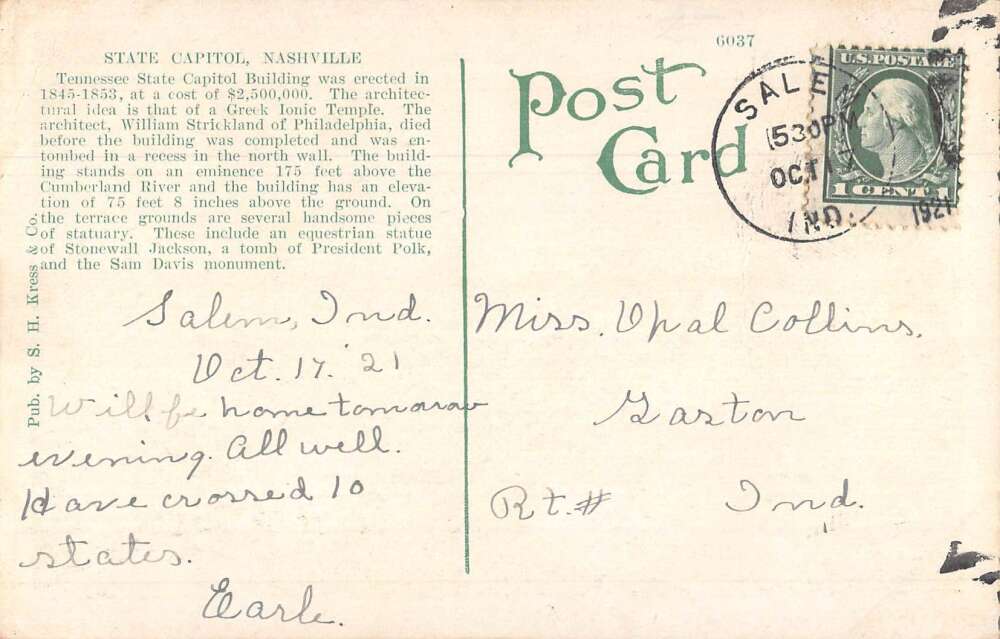 6037
STATE CAPITOL, NASHVILLE
Tennessee State Capitol Building was erected in
1845-1853, at a cost of $2,500,000. The architec-
tural idea is that of a Greek Ionic Temple. The
architect, William Strickland of Philadelphia, died
before the building was completed and was en-
tombed in a recess in the north wall. The build-
ing stands on an eminence 175 feet above the
Cumberland River and the building has an eleva-
tion of 75 feet 8 inches above the ground. On
the terrace grounds are several handsome pieces
of statuary. These include an equestrian statue
of Stonewall Jackson, a tomb of President Polk,
and the Sam Davis monument.
Pub. by S. H. Kress & Co.
Post
Card
SALE
530PM
OCT
1921
IND.
U.S. POSTAGE
1 CENT 1
Salem, Ind.
Oct. 17. '21
Will be home tomorrow
evening. All well.
Have crossed 10
states.
Earle.
Miss. Opal Collins.
Gaston
Rt. # Ind.